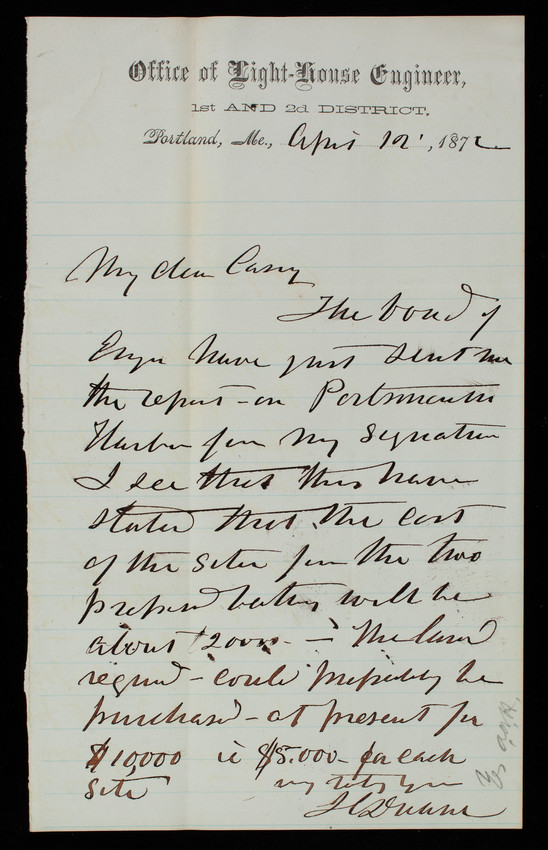 Office of Light-House Engineer,
1st AND 2d DISTRICT,
Portland, Me., April 12, 1872
My dear Casey
The board of
Engr have just sent me
the report on Portsmouth
Harbor for my signature
I see that they have
stated that the cost
of the sites for the two
proposed batteries will be
about 2000 - The land
required - could probably be
purchased - at present for
$10,000 ie $5.000 - for each
site
J C Duane